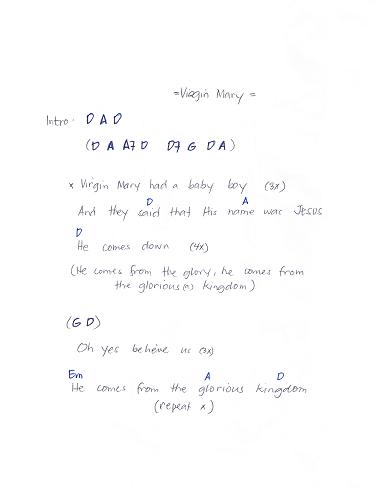 =Virgin Mary =
Intro: D A D
(D A A7 D D7 G D A)
x Virgin Mary had a baby boy (3x)
D A
And they said that His name was Jesus
D
He comes down (4x)
(He comes from the glory, he comes from
the glorious kingdom)
(G D)
Oh yes believe us (3x)
Em A D
He comes from the glorious kingdom
(repeat x)